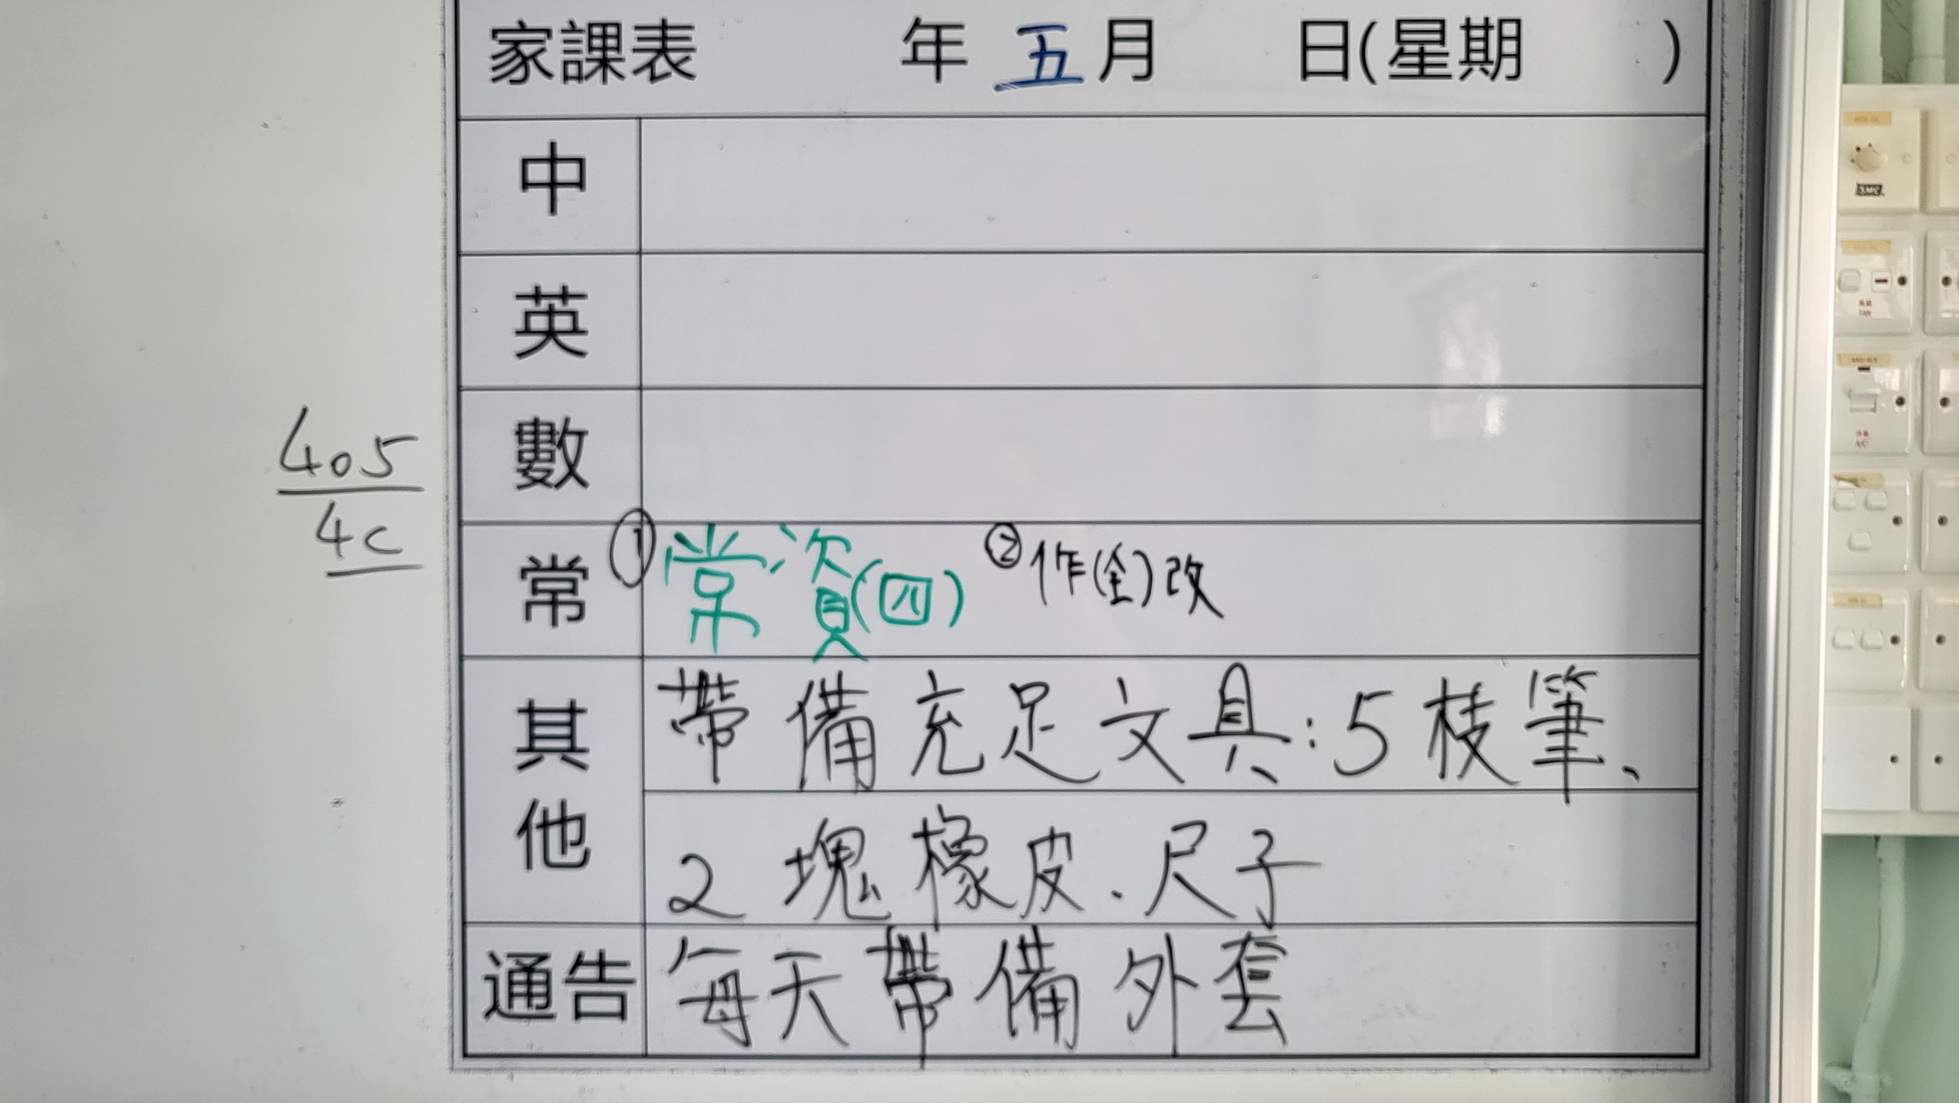 家課表 年 五月 日(星期 )
中
英
數
405
4c
常 ①常資(四) ②作(全)改
其他 帶備充足文具:5枝筆、
2塊橡皮、尺子
通告 每天帶備外套
SMC
FAN
A/C